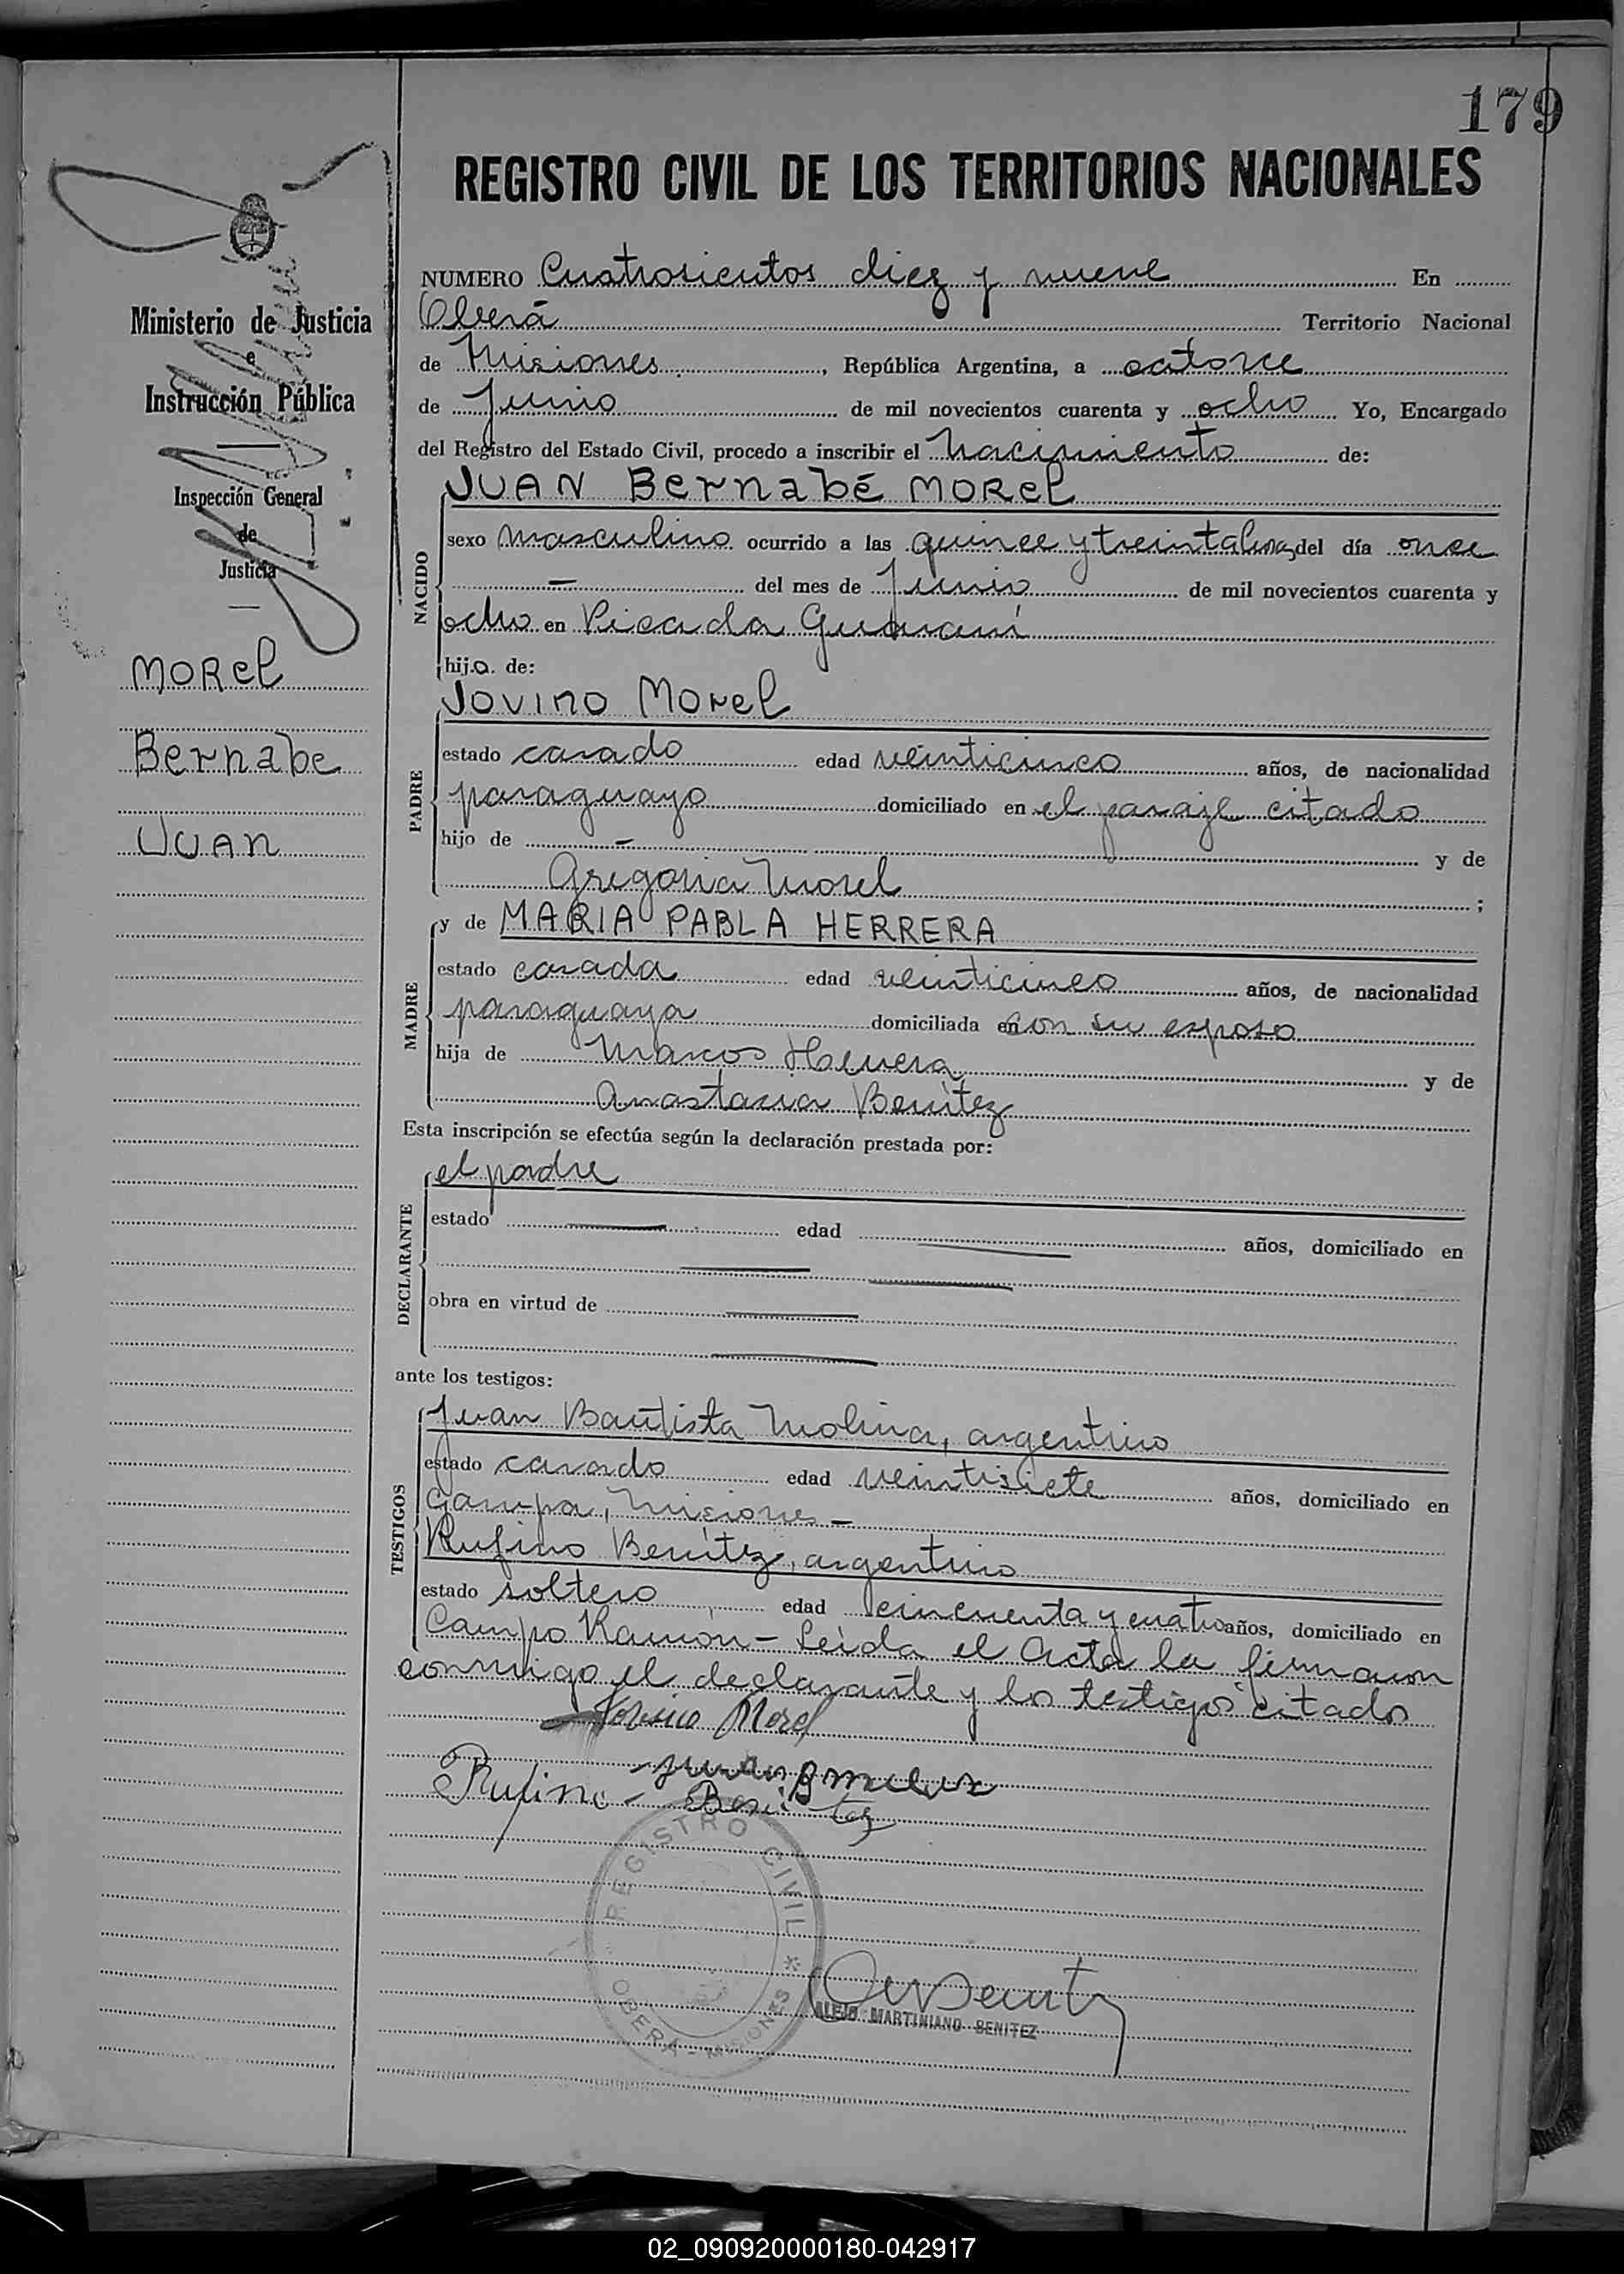 179
REGISTRO CIVIL DE LOS TERRITORIOS NACIONALES
Ministerio de Justicia
e
Instrucción Pública
Inspección General
de
Justicia
MOREL
Bernabe
JUAN
NUMERO Cuatrosientos diez y nueve En
Oberá Territorio Nacional
de Misiones, República Argentina, a catorce
de Junio de mil novecientos cuarenta y ocho Yo, Encargado
del Registro del Estado Civil, procedo a inscribir el Nacimiento de:
JUAN Bernabé MOREL
NACIDO
sexo masculino ocurrido a las quince y treinta horas del día once
— del mes de Junio de mil novecientos cuarenta y
ocho en Picada Guaraní
hijo de:
JOVINO MOREL
PADRE
estado casado edad veinticinco años, de nacionalidad
paraguayo domiciliado en el paraje citado
hijo de — y de
Gregoria Morel ;
y de MARIA PABLA HERRERA
MADRE
estado casada edad veinticinco años, de nacionalidad
paraguaya domiciliada en con su esposo
hija de Marcos Herrera y de
Anastasia Benítez
Esta inscripción se efectúa según la declaración prestada por:
el padre
DECLARANTE
estado — edad — años, domiciliado en
— —
obra en virtud de —
—
ante los testigos:
Juan Bautista Molina, argentino
TESTIGOS
estado casado edad veintisiete años, domiciliado en
Misiones —
Rufino Benítez, argentino
estado soltero edad cincuenta y cuatro años, domiciliado en
Campo Ramón — Leída el Acta la firmaron
conmigo el declarante y los testigos citados
Jovino Morel
Juan B Molina
Rufino - Benitez
REGISTRO CIVIL * OBERA - MISIONES
ALEJO MARTINIANO BENITEZ
02_090920000180-042917